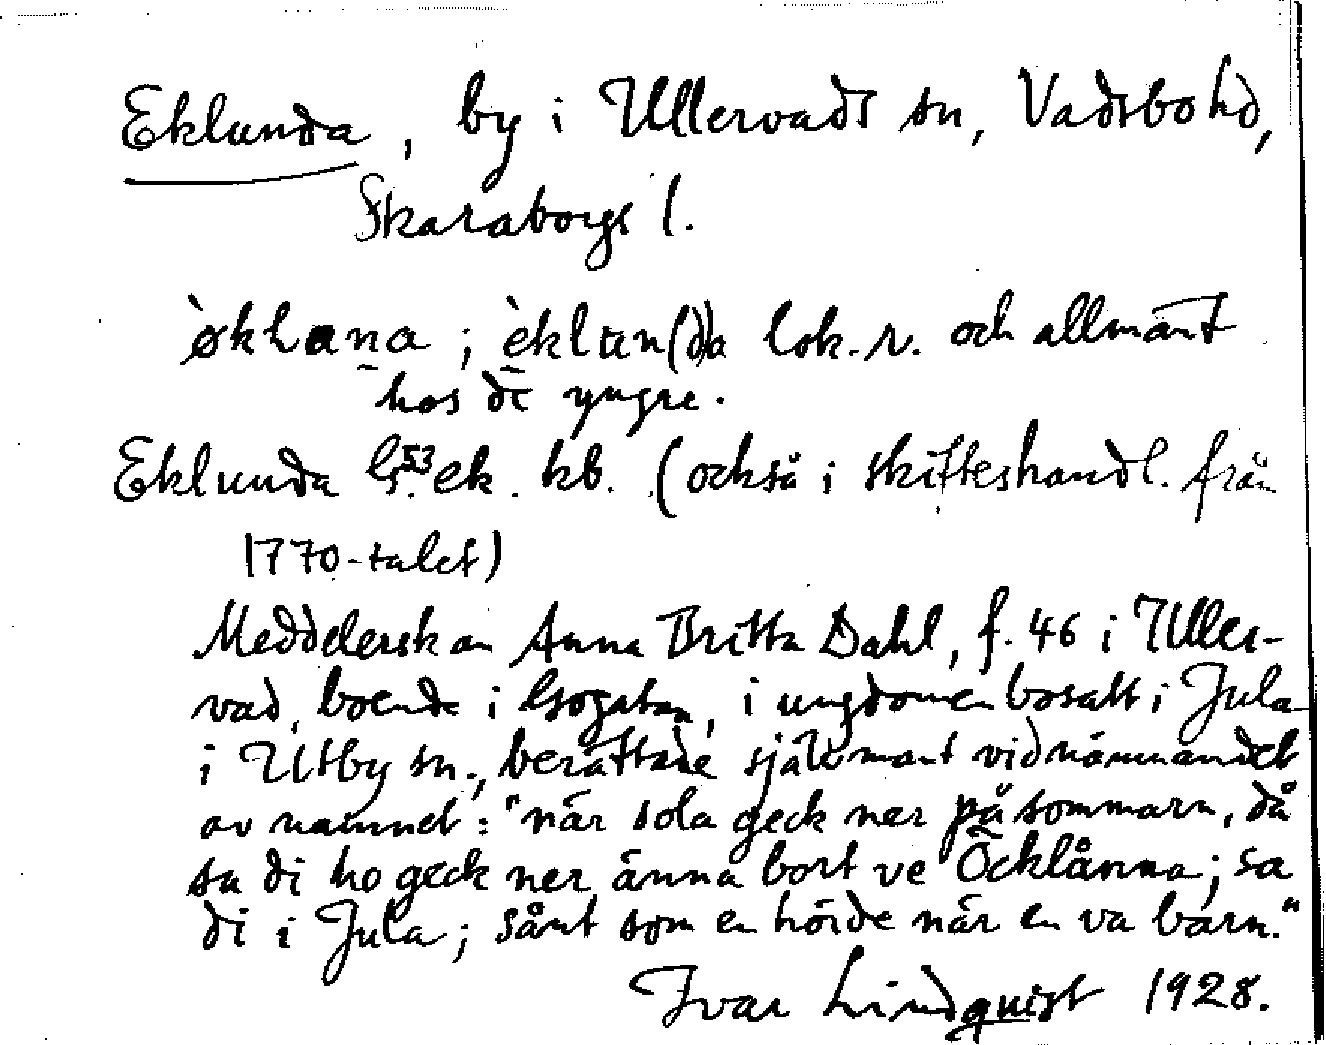 Eklunda, by i Ullervads sn, Vadsbo hd,
Skaraborgs l.
; èklun(d)a lok. r. och allmänt
hos de yngre.
Eklunda G. 53 ek. kb. (också i skifteshandl. från
1770-talet)
Meddelerskan Anna Britta Dahl, f. 46 i Uller-
vad, boende i Grogatan, i ungdomen bosatt i Jula
i Utby sn., berättade självmant vid nämnandet
av namnet: "när sola geck ner på sommarn, då
sa di ho geck ner änna bort ve Öcklånna; sa
di i Jula; sånt som en hörde när en va barn."
Ivar Lindquist 1928.